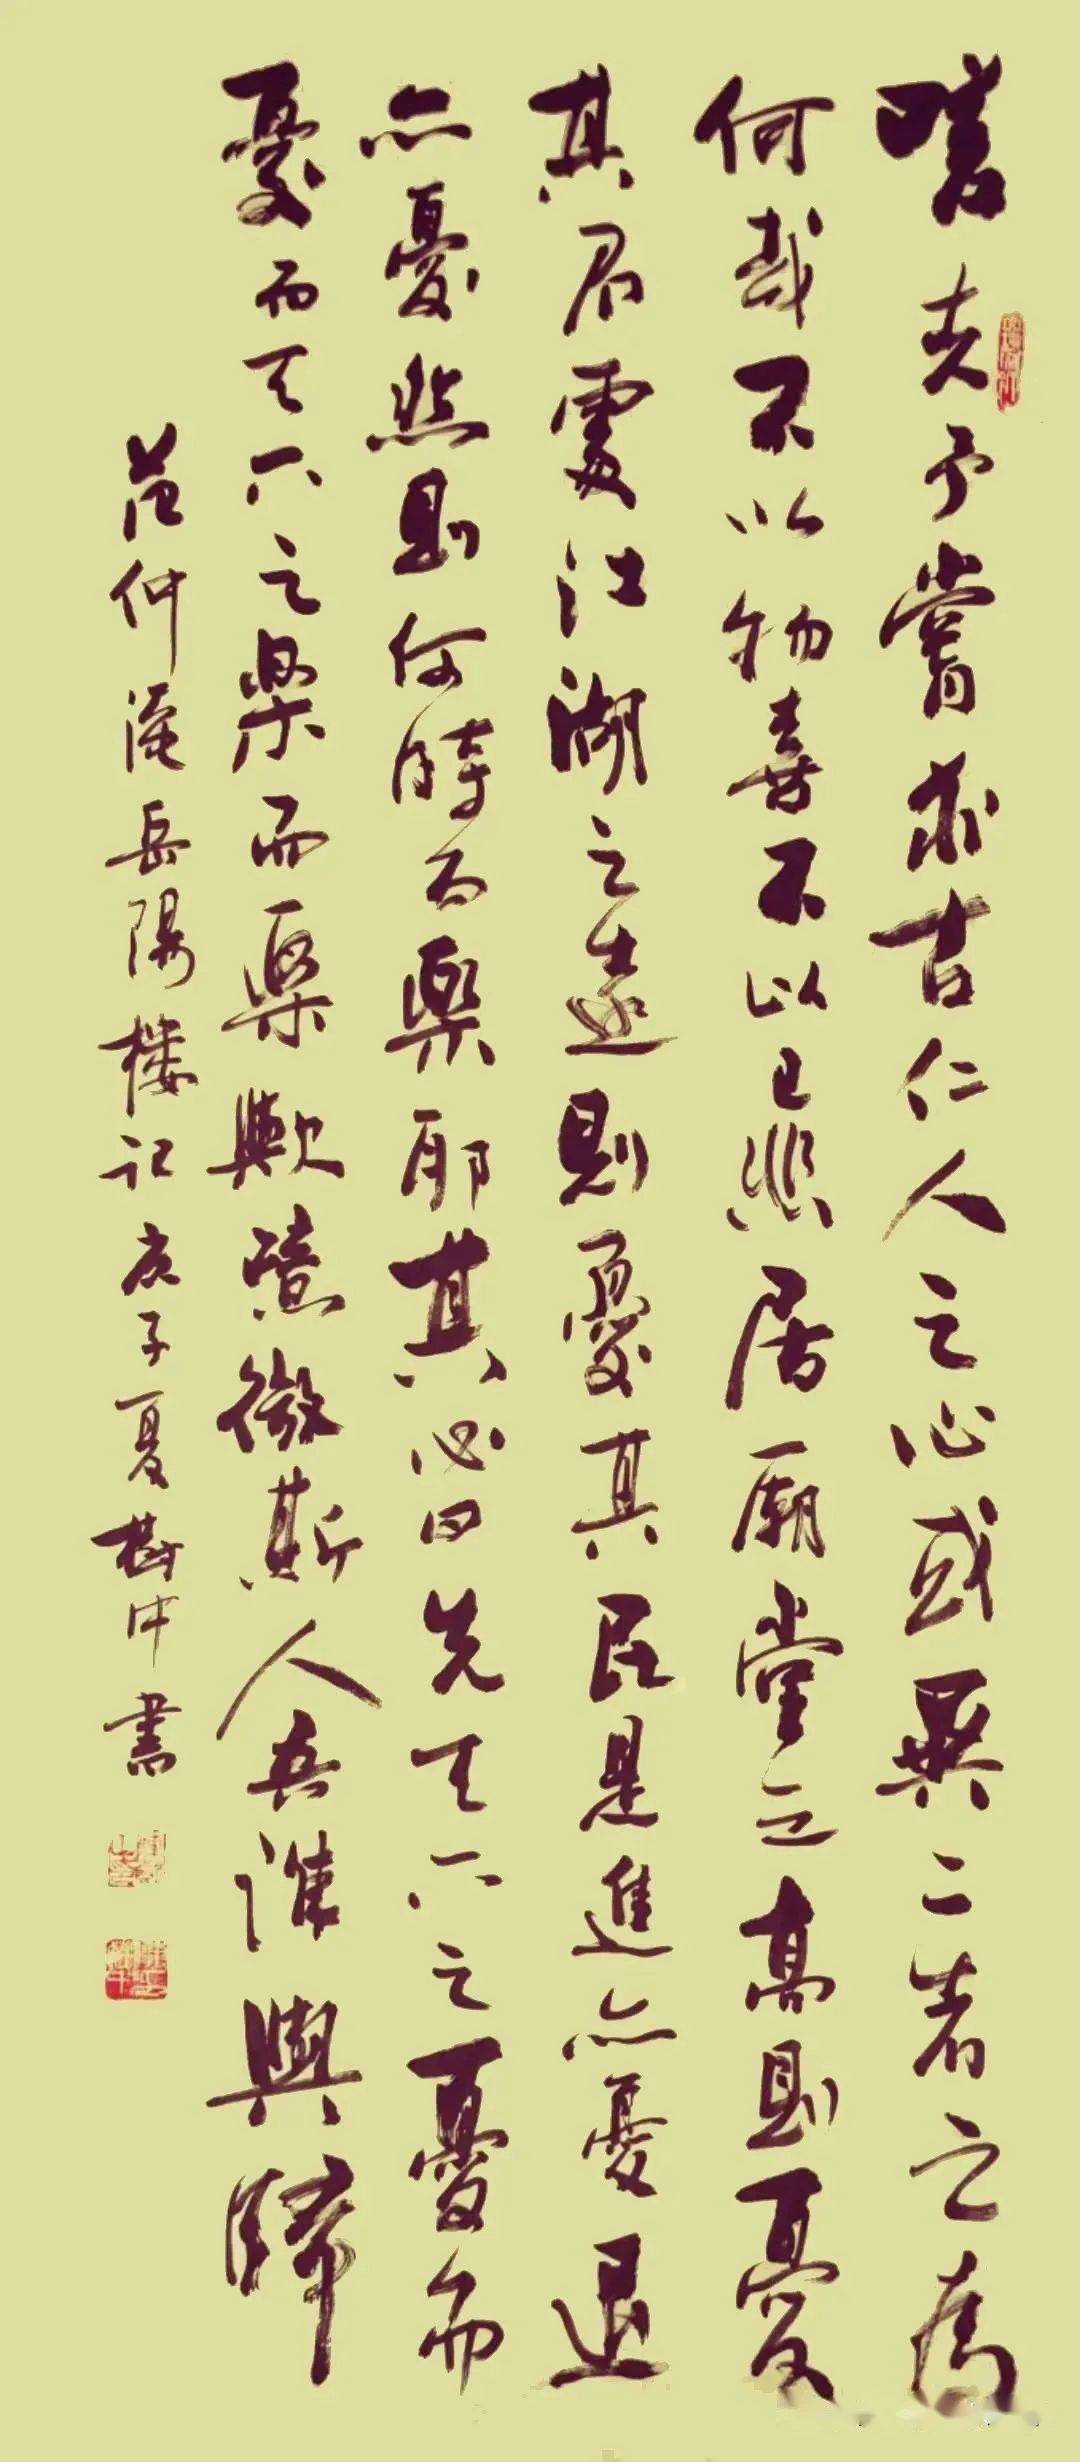 嗟夫予嘗求古仁人之心或異二者之為
何哉不以物喜不以己悲居廟堂之高則憂
其君處江湖之遠則憂其民是進亦憂退
亦憂然則何時而樂耶其必曰先天下之憂而
憂而天下之樂而樂歟噫微斯人吾誰與歸
范仲淹岳陽樓記庚子夏樹中書